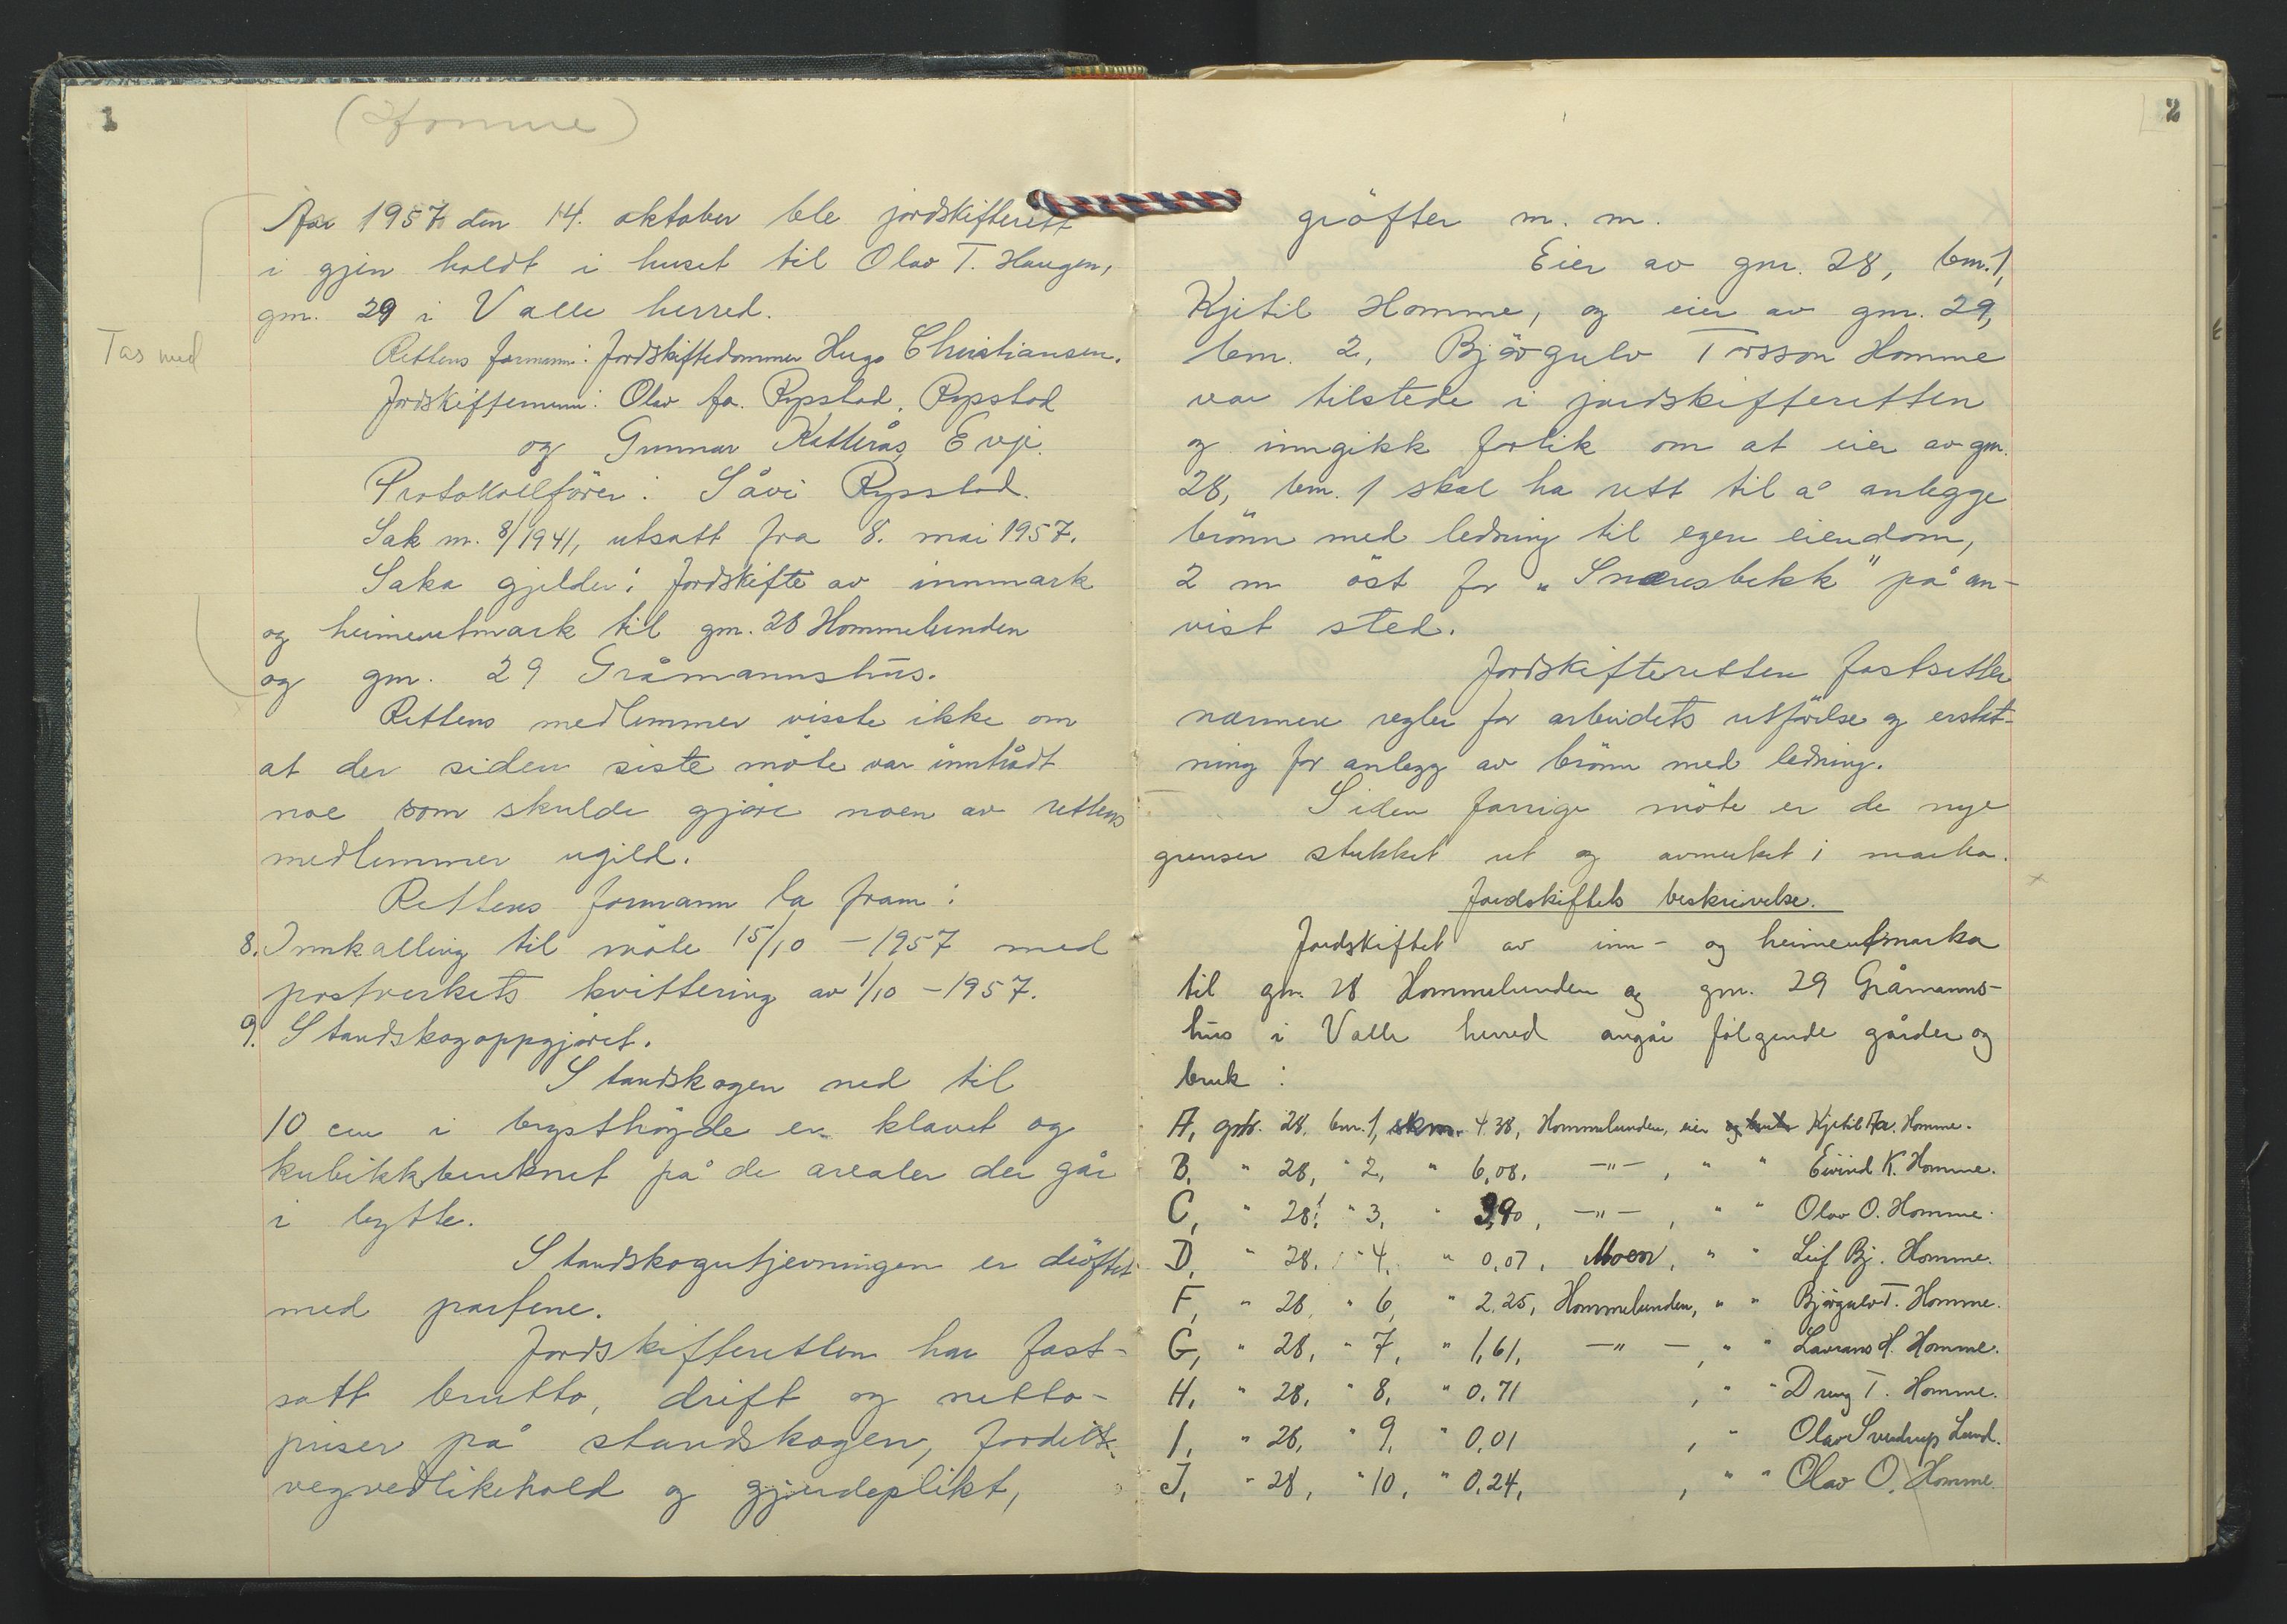 1
(Homme)
Aar 1957 den 14. oktober ble jordskifterett
i gjen holdt i huset til Olav T. Haugen,
gnr. 29 i Valle herred.
Tas med
Rettens formann: Jordskiftedommer Hugo Christiansen.
Jordskiftemenn: Olav Aa. Rysstad, Rysstad
og Gunnar Katterås, Evje.
Protokollfører: Såvi Rysstad.
Sak nr. 8/1941, utsatt fra 8. mai 1957.
Saka gjelder: Jordskifte av innmark
og heimeutmark til gnr. 28 Hommelunden
og gnr. 29 Gråmannshus.
Rettens medlemmer visste ikke om
at der siden siste möte var inntrådt
noe som skulde gjöre noen av rettens
medlemmer ugild.
Rettens formann la fram:
8. Innkalling til möte 15/10 - 1957 med
postverkets kvittering av 1/10 - 1957.
9. Standskogoppgjöret.
Standskogen ned til
10 cm i brysthöyde er klavet og
kubikkbereknet på de arealer der går
i bytte.
Standskogutjevningen er dröftet
med partene.
Jordskifteretten har fast-
satt brutto, drift og netto-
priser på standskogen, fordelt
vegvedlikehold og gjerdeplikt,
2
gröfter m. m.
Eier av gnr. 28, bnr. 1,
Kjetil Homme, og eier av gnr. 29,
bnr. 2, Björgulv Torsson Homme
var tilstede i jordskifteretten
og inngikk forlik om at eier av gnr.
28, bnr. 1 skal ha rett til å anlegge
brönn med ledning til egen eiendom,
2 m öst for "Snæresbekk" på an-
vist sted.
Jordskifteretten fastsetter
nærmere regler for arbeidets utförelse og erstat-
ning for anlegg av brönn med ledning.
Siden forrige möte er de nye
grenser stukket ut og avmerket i marka.
Jordskiftets beskrivelse.
Jordskiftet av inn- og heimeutmarka
til gnr. 28 Hommelunden og gnr. 29 Gråmanns-
hus i Valle herred angår fölgende gårder og
bruk:
A, gnr. 28, bnr. 1, skm. 4.38, Hommelunden, eier og bruker Kjetil Aa. Homme.
B, " 28, " 2, " 6,08, —"—, " " Eivind K. Homme.
C, " 28, " 3, " 3,90, —"—, " " Olav O. Homme.
D, " 28, " 4, " 0,07, Moen, " " Leif Bj. Homme.
F, " 28, " 6, " 2.25, Hommelunden, " " Björgulv T. Homme.
G, " 28, " 7, " 1,61, —"—, " " Lavrans H. Homme.
H, " 28, " 8, " 0,71 , " " Dreng T. Homme.
I, " 28, " 9, " 0,01 , " Olav Sverdrup Lund.
J, " 28, " 10, " 0,24, , " " Olav O. Homme.